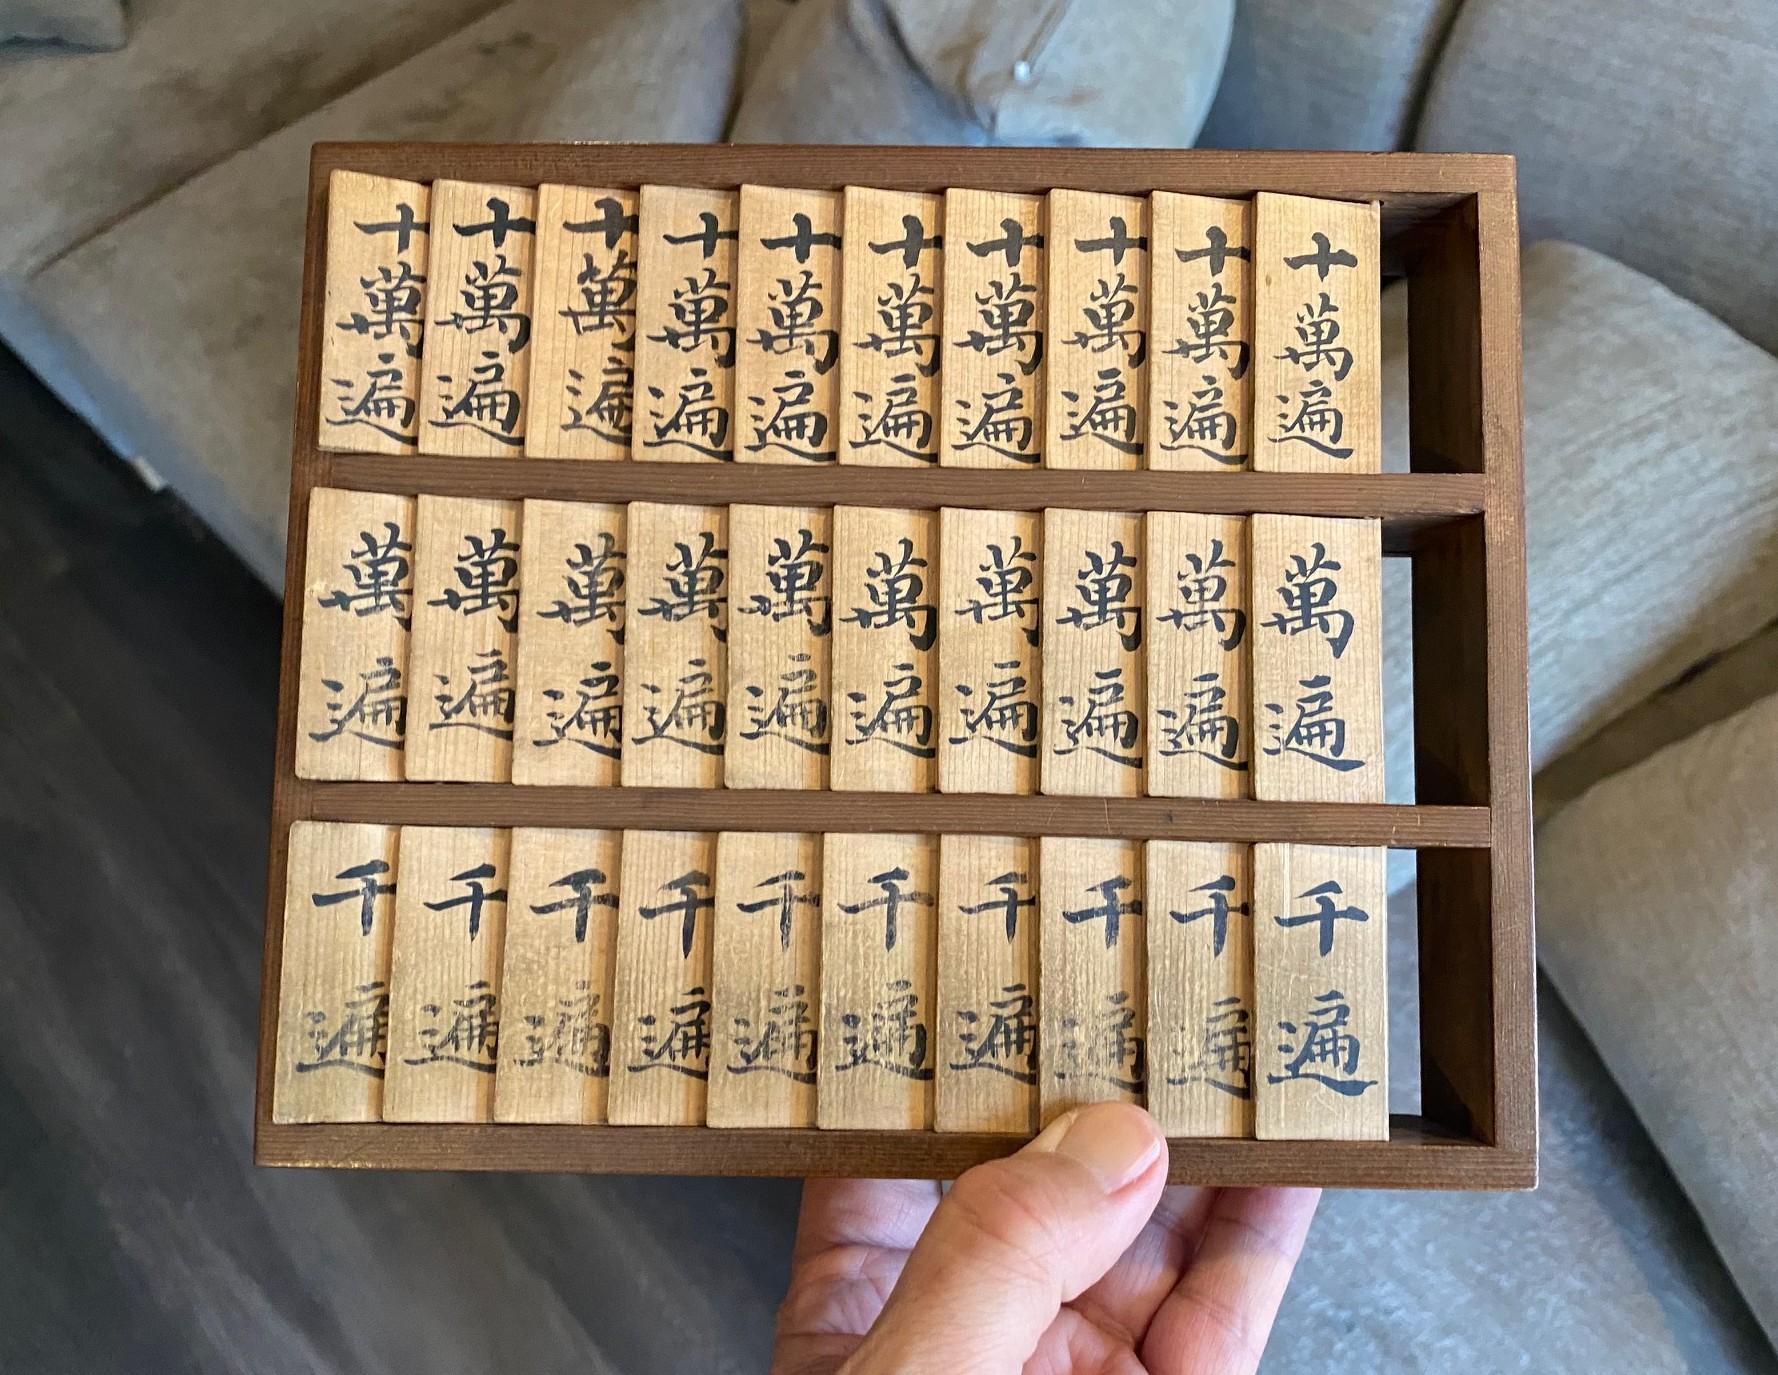 十萬遍 十萬遍 十萬遍 十萬遍 十萬遍 十萬遍 十萬遍 十萬遍 十萬遍 十萬遍
萬遍 萬遍 萬遍 萬遍 萬遍 萬遍 萬遍 萬遍 萬遍 萬遍
千遍 千遍 千遍 千遍 千遍 千遍 千遍 千遍 千遍 千遍